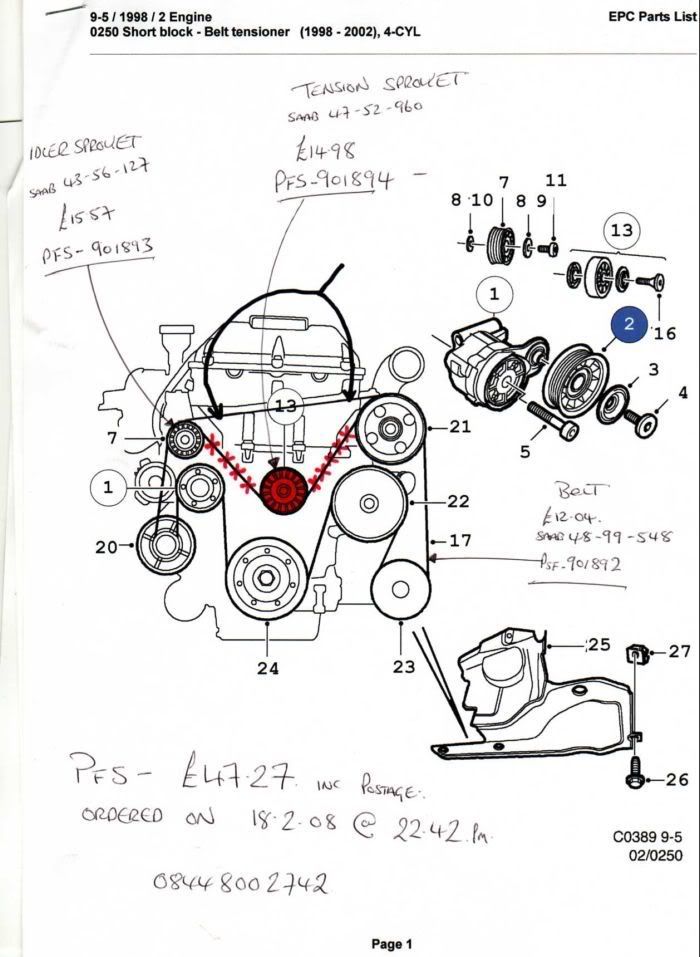 9-5 / 1998 / 2 Engine
EPC Parts List
0250 Short block - Belt tensioner (1998 - 2002), 4-CYL
TENSION SPROCKET
SAAB 47-52-960
£14.98
PFS-901894 -
IDLER SPROCKET
SAAB 43-56-127
£15.57
PFS-901893
8 10 7 8 9 11
13
1
2
16
3
4
5
13
7
21
1
22
20
17
24
23
BELT
£12.04.
SAAB 48-99-548
PSF-901892
25
27
26
PFS- £47.27. INC POSTAGE.
ORDERED ON 18.2.08 @ 22.42 Pm.
08448002742
C0389 9-5
02/0250
Page 1